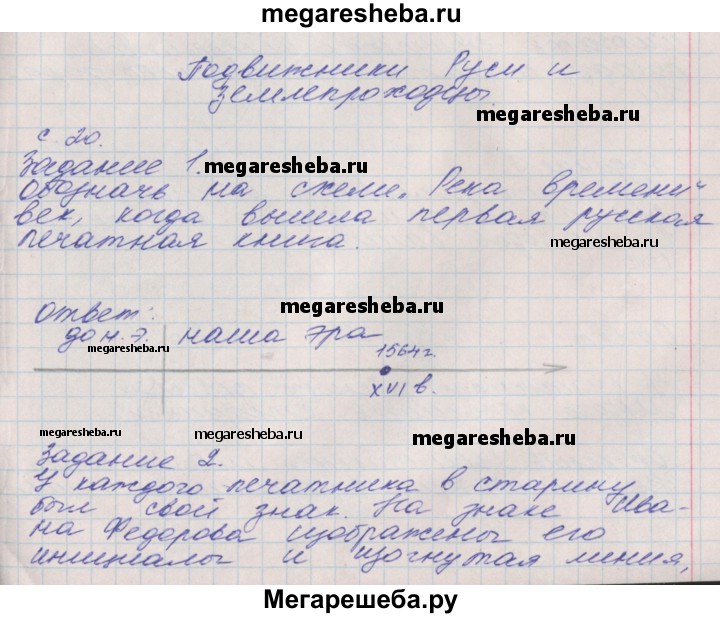 megaresheba.ru
Подвижники Руси и
землепроходцы
megaresheba.ru
с. 20.
Задание 1.
megaresheba.ru
Обозначь на схеме „Река времени"
век, когда вышла первая русская
печатная книга.
megaresheba.ru
Ответ:
megaresheba.ru
до н.э. наша эра
megaresheba.ru
1564 г.
XVI в.
megaresheba.ru
megaresheba.ru
megaresheba.ru
Задание 2.
У каждого печатника в старину
был свой знак. На знаке Ива-
на Федорова изображены его
инициалы и изогнутая линия,
Мегарешеба.ру